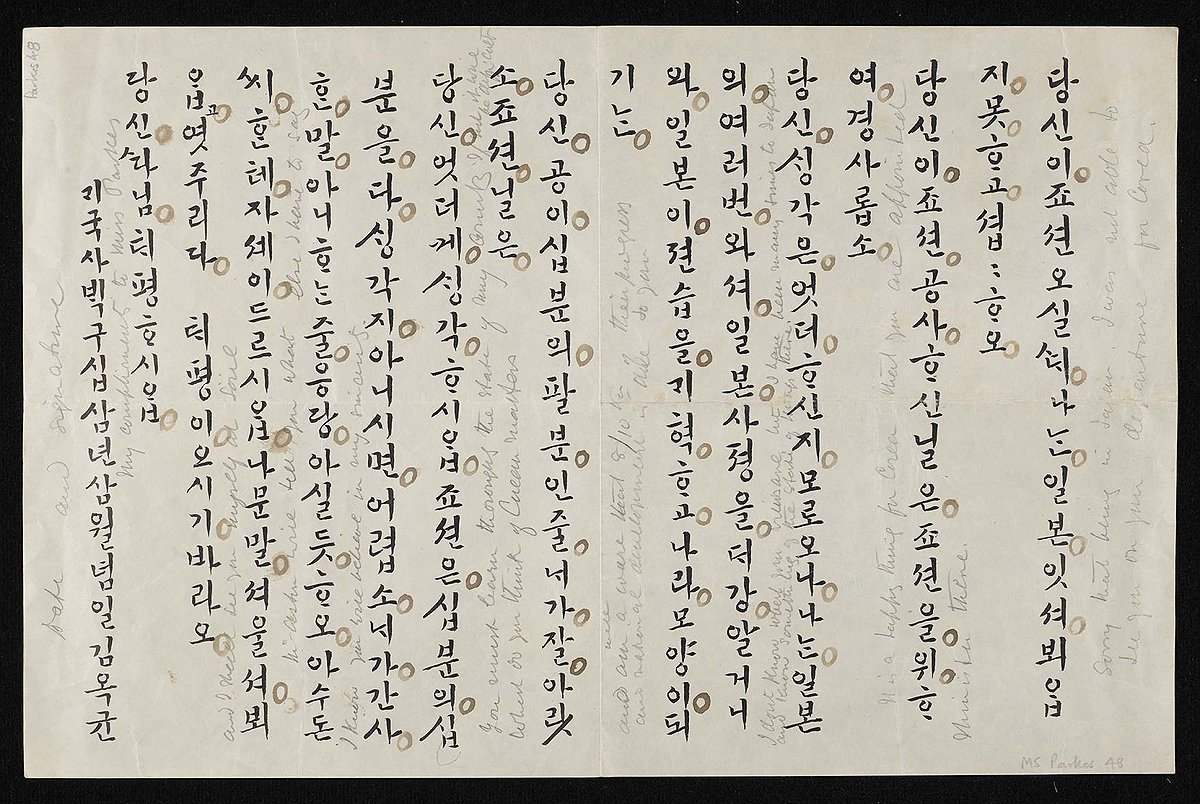 당신이죠션오실ᄯᆡ나ᄂᆞᆫ일본잇셔뵈ᄋᆞᆸ
지못ᄒᆞ고셥〻ᄒᆞ오
당신이죠션공사ᄒᆞ신닐은죠션을위ᄒᆞ
여경사롭소
당신ᄉᆡᆼ각은엇더ᄒᆞ신지모로오나나ᄂᆞᆫ일본
의여러번와셔일본사졍을ᄃᆡ강알거니
와일본이젼습을ᄀᆡ혁ᄒᆞ고나라모양이되
기ᄂᆞᆫ
당신공이십분의팔분인줄ᄂᆡ가잘아랏
소죠션닐은
당신엇더케ᄉᆡᆼ각ᄒᆞ시ᄋᆞᆸ죠션은십분의십
분을다ᄉᆡᆼ각지아니시면어렵소ᄂᆡ가간사
ᄒᆞᆫ말아니ᄒᆞᄂᆞᆫ줄응당아실듯ᄒᆞ오아수돈
씨ᄒᆞᆫ테자셰이드르시ᄋᆞᆸ나문말셔울셔뵈
ᄋᆞᆸ고엿주리다 ᄐᆡ평이오시기바라오
당신ᄯᅡ님ᄐᆡ평ᄒᆞ시ᄋᆞᆸ
ᄀᆡ국사ᄇᆡᆨ구십삼년삼월념일김옥균
Sorry that being in Japan I was not able to
see you on your departure for Corea.
It is a happy thing for Corea that you are appointed
Minister there.
and am aware that 8/10 of their progress
and national development is all due to you
You must learn through the state of my country
What do you think of Corean matters
you will believe in my sincerity
Mr Aston will tell you what else I have to say
and I shall see you myself at Söul
My compliments to Miss Parkes
Date and signature
Parkes 48
MS Parkes 48